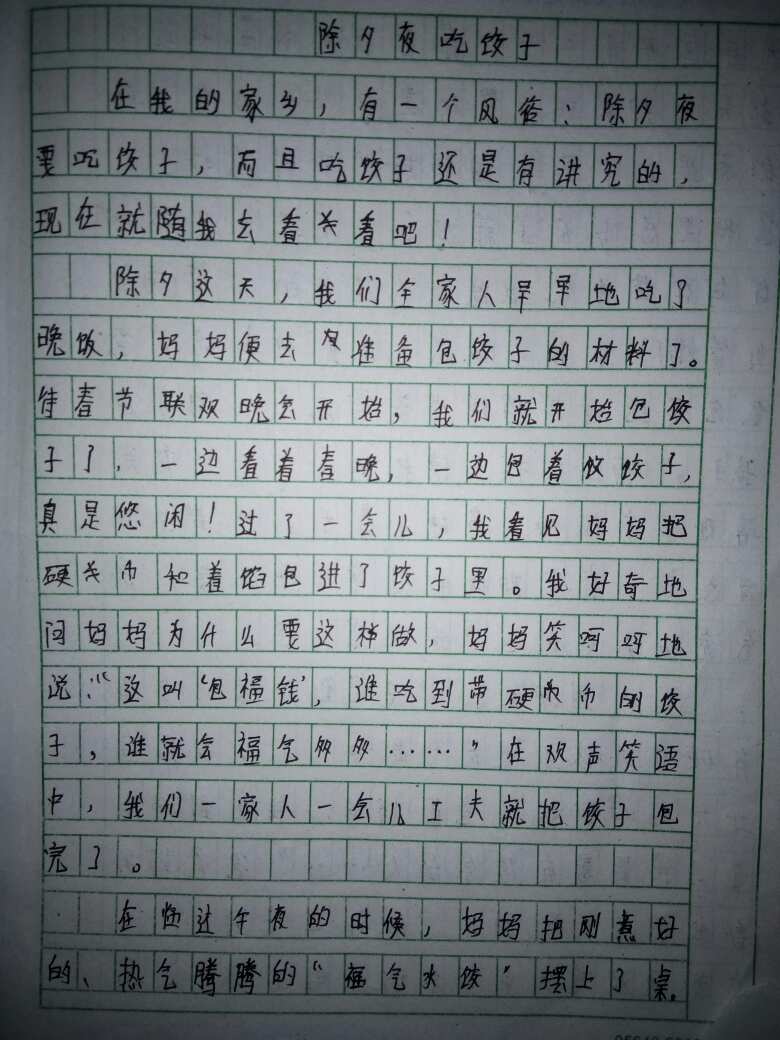 除夕夜吃饺子
在我的家乡，有一个风俗：除夕夜
要吃饺子，而且吃饺子还是有讲究的，
现在就随我去看关看吧！
除夕这天，我们全家人早早地吃了
晚饭，妈妈便去准备包饺子的材料了。
待春节联欢晚会开始，我们就开始包饺
子了，一边看着春晚，一边包着饺子，
真是悠闲！过了一会儿，我看见妈妈把
硬币和着馅包进了饺子里。我好奇地
问妈妈为什么要这样做，妈妈笑呵呵地
说：“这叫‘包福钱’，谁吃到带硬币币的饺
子，谁就会福气多多……”在欢声笑语
中，我们一家人一会儿工夫就把饺子包
完了。
在快过午夜的时候，妈妈把刚煮好
的、热气腾腾的“福气水饺”摆上了桌。